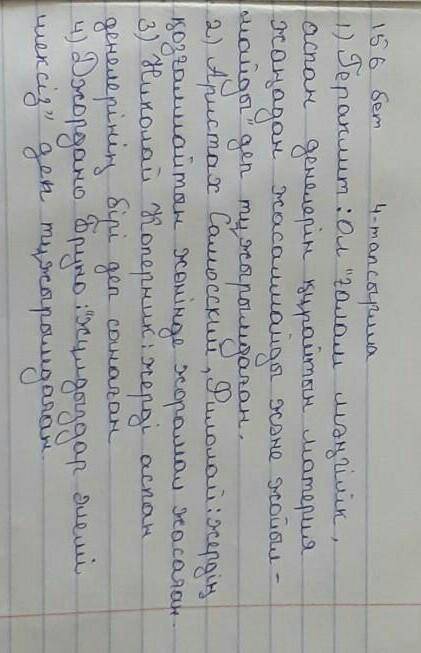 156 бет 4-тапсырма
1) Гераклит: Ол "ғалам мәңгілік,
аспан денелерін құрайтын материя
жаңадан жасалмайды және жойыл-
майды" деп тұжырымдаған.
2) Аристах Самосский, Филолай: жердің
қозғалмайтын жөнінде жорамал жасаған.
3) Николай Коперник: жерді аспан
денелерінің бірі деп санаған
4) Джордано Бруно: "жұлдыздар әлемі
шексіз" деп тұжырымдаған.